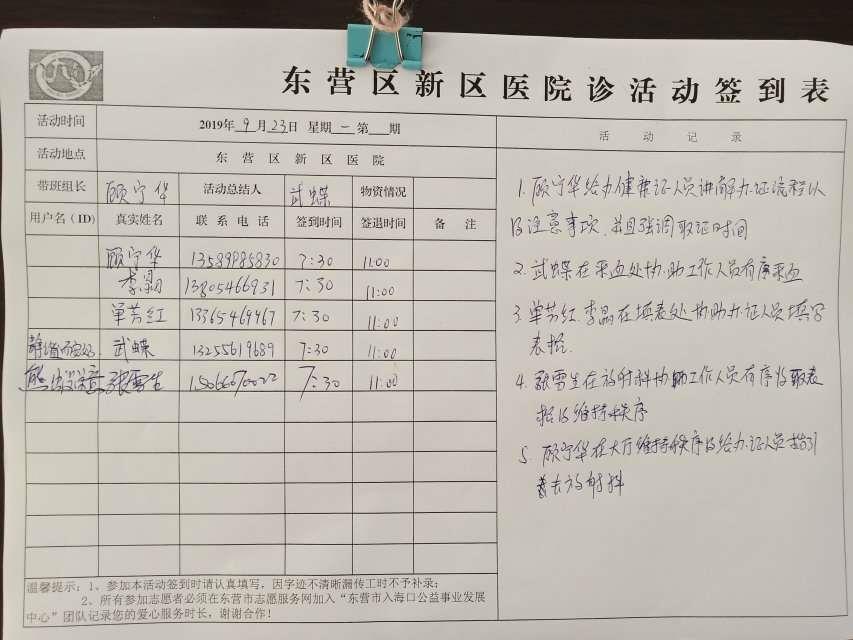 东营区新区医院诊活动签到表
活动时间 2019年 9 月 23 日 星期 一 第 期 活动记录
活动地点 东营区新区医院
带班组长 顾宁华 活动总结人 武蝶 物资情况
用户名(ID) 真实姓名 联系电话 签到时间 签退时间 备注
顾宁华 13589985830 7:30 11:00
李晶 13805466931 7:30 11:00
单芳红 13365469467 7:30 11:00
武蝶 13255619689 7:30 11:00
张雪生 15066070022 7:30 11:00
1. 顾宁华给办健康证人员讲解办证流程以
及注意事项,并且强调取证时间
2. 武蝶在采血处协助工作人员有序采血
3. 单芳红、李晶在填表处协助办证人员填写
表格.
4. 张雪生在放射科协助工作人员有序收取表
格及维持秩序
5. 顾宁华在大厅维持秩序及给办证人员指引
着去放射科
温馨提示:1、参加本活动签到时请认真填写,因字迹不清晰漏传工时不予补录;
2、所有参加志愿者必须在东营市志愿服务网加入“东营市入海口公益事业发展
中心”团队记录您的爱心服务时长,谢谢合作!